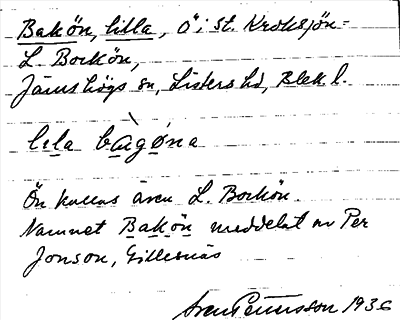 Bakön, lilla, ö i St. Kroksjön =
L. Bockön,
Jämshögs sn, Listers hd, Blek. l.
lila bagöna
Ön kallas även L. Bockön.
Namnet Bakön meddelat av Per
Jonson, Gillesnäs
1936